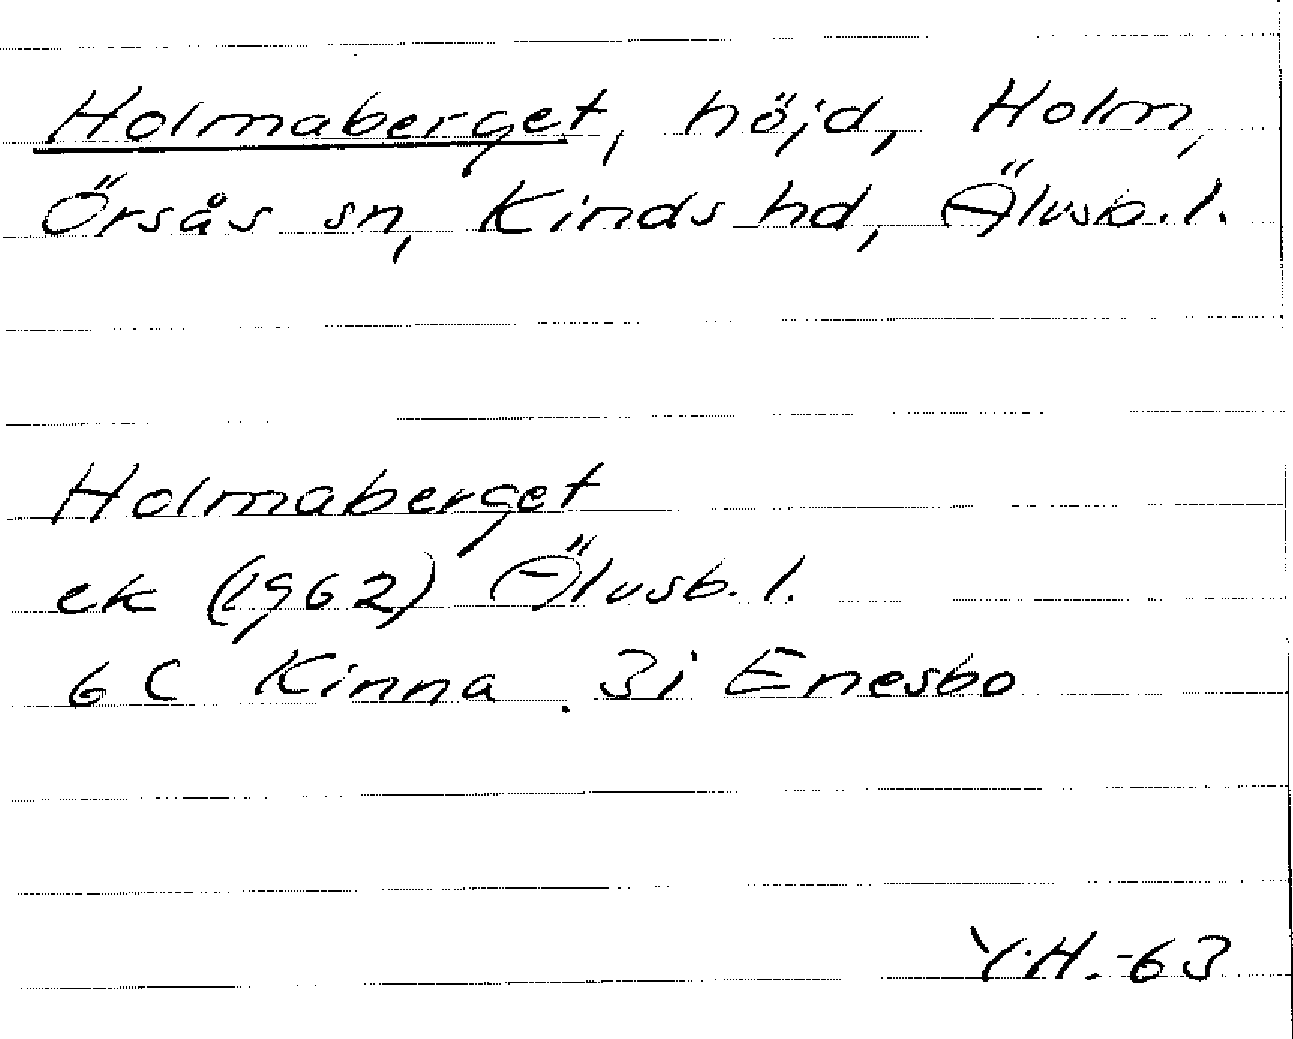 Holmaberget, höjd, Holm,
Örsås sn, Kinds hd, Älvsb. l.
Holmaberget
ek (1962) Älvsb. l.
6 C Kinna. 3i Enesbo
Y.H.-63